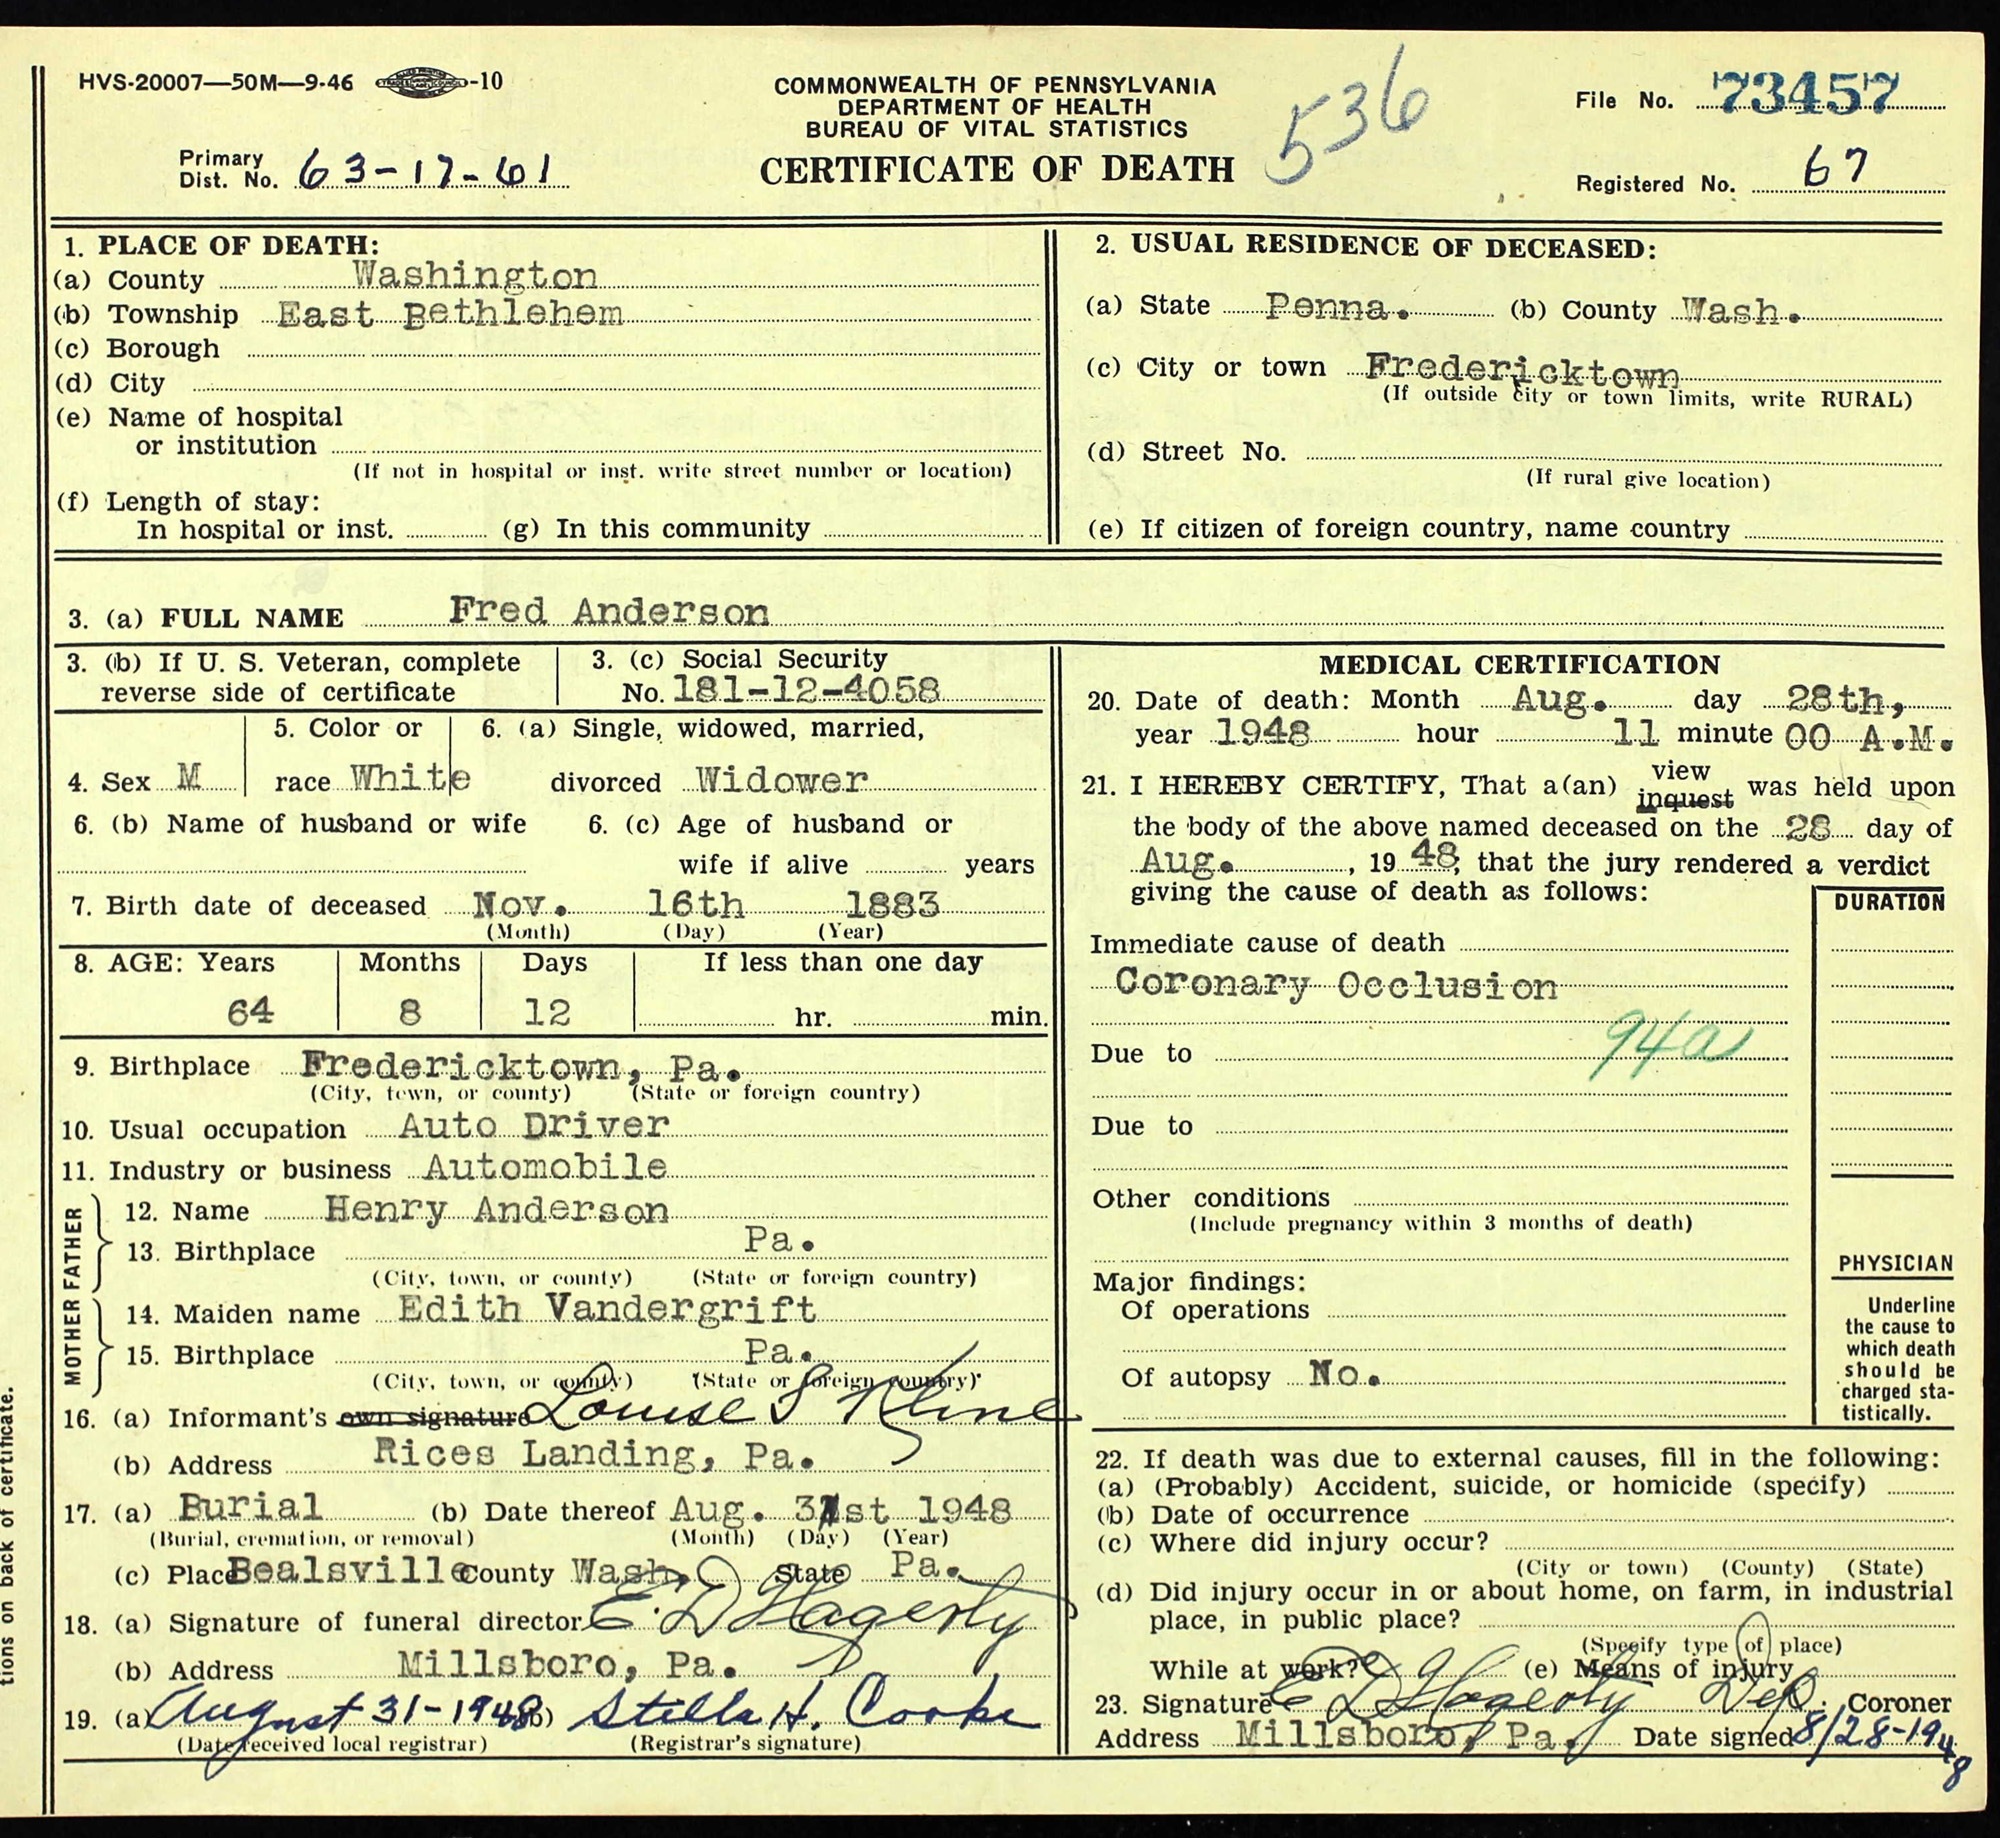 HVS-20007—50M—9-46 -10
COMMONWEALTH OF PENNSYLVANIA
DEPARTMENT OF HEALTH
BUREAU OF VITAL STATISTICS
CERTIFICATE OF DEATH
536
File No. 73457
Primary
Dist. No. 63-17-61
Registered No. 67
1. PLACE OF DEATH:
(a) County Washington
(b) Township East Bethlehem
(c) Borough
(d) City
(e) Name of hospital
or institution
(If not in hospital or inst. write street number or location)
(f) Length of stay:
In hospital or inst. (g) In this community
2. USUAL RESIDENCE OF DECEASED:
(a) State Penna. (b) County Wash.
(c) City or town Fredericktown
(If outside city or town limits, write RURAL)
(d) Street No.
(If rural give location)
(e) If citizen of foreign country, name country
3. (a) FULL NAME Fred Anderson
3. (b) If U. S. Veteran, complete
reverse side of certificate
3. (c) Social Security
No. 181-12-4058
4. Sex M
5. Color or
race White
6. (a) Single, widowed, married,
divorced Widower
6. (b) Name of husband or wife
6. (c) Age of husband or
wife if alive years
7. Birth date of deceased Nov. 16th 1883
(Month) (Day) (Year)
8. AGE: Years Months Days If less than one day
64 8 12 hr. min.
9. Birthplace Fredericktown, Pa.
(City, town, or county) (State or foreign country)
10. Usual occupation Auto Driver
11. Industry or business Automobile
FATHER
12. Name Henry Anderson
13. Birthplace Pa.
(City, town, or county) (State or foreign country)
MOTHER
14. Maiden name Edith Vandergrift
15. Birthplace Pa.
(City, town, or county) (State or foreign country)
16. (a) Informant's own signature Louise S Kline
(b) Address Rices Landing, Pa.
17. (a) Burial (b) Date thereof Aug. 31st 1948
(Burial, cremation, or removal) (Month) (Day) (Year)
(c) Place Bealsville County Wash. State Pa.
18. (a) Signature of funeral director E. D Hagerty
(b) Address Millsboro, Pa.
19. (a) August 31-1948 (b) Stella H. Cooke
(Date received local registrar) (Registrar's signature)
MEDICAL CERTIFICATION
20. Date of death: Month Aug. day 28th,
year 1948 hour 11 minute 00 A.M.
21. I HEREBY CERTIFY, That a(an) view inquest was held upon
the body of the above named deceased on the 28 day of
Aug. , 19 48; that the jury rendered a verdict
giving the cause of death as follows:
DURATION
Immediate cause of death
Coronary Occlusion
94a
Due to
Due to
Other conditions
(Include pregnancy within 3 months of death)
Major findings:
Of operations
Of autopsy No.
PHYSICIAN
Underline
the cause to
which death
should be
charged sta-
tistically.
22. If death was due to external causes, fill in the following:
(a) (Probably) Accident, suicide, or homicide (specify)
(b) Date of occurrence
(c) Where did injury occur?
(City or town) (County) (State)
(d) Did injury occur in or about home, on farm, in industrial
place, in public place?
(Specify type of place)
While at work? (e) Means of injury
23. Signature E D Hagerty Dep. Coroner
Address Millsboro, Pa. Date signed 8/28-1948
tions on back of certificate.